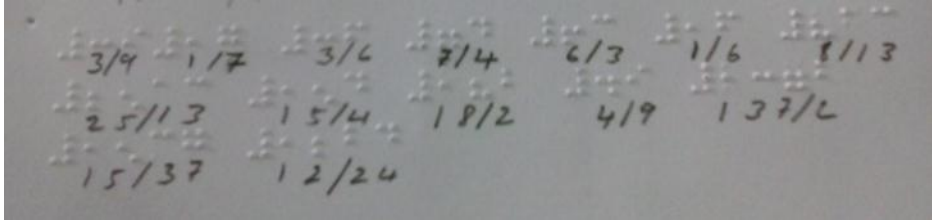 3/9 1/7 3/6 7/4 6/3 1/6 8/13
25/13 15/4 18/2 4/9 137/2
15/37 12/24